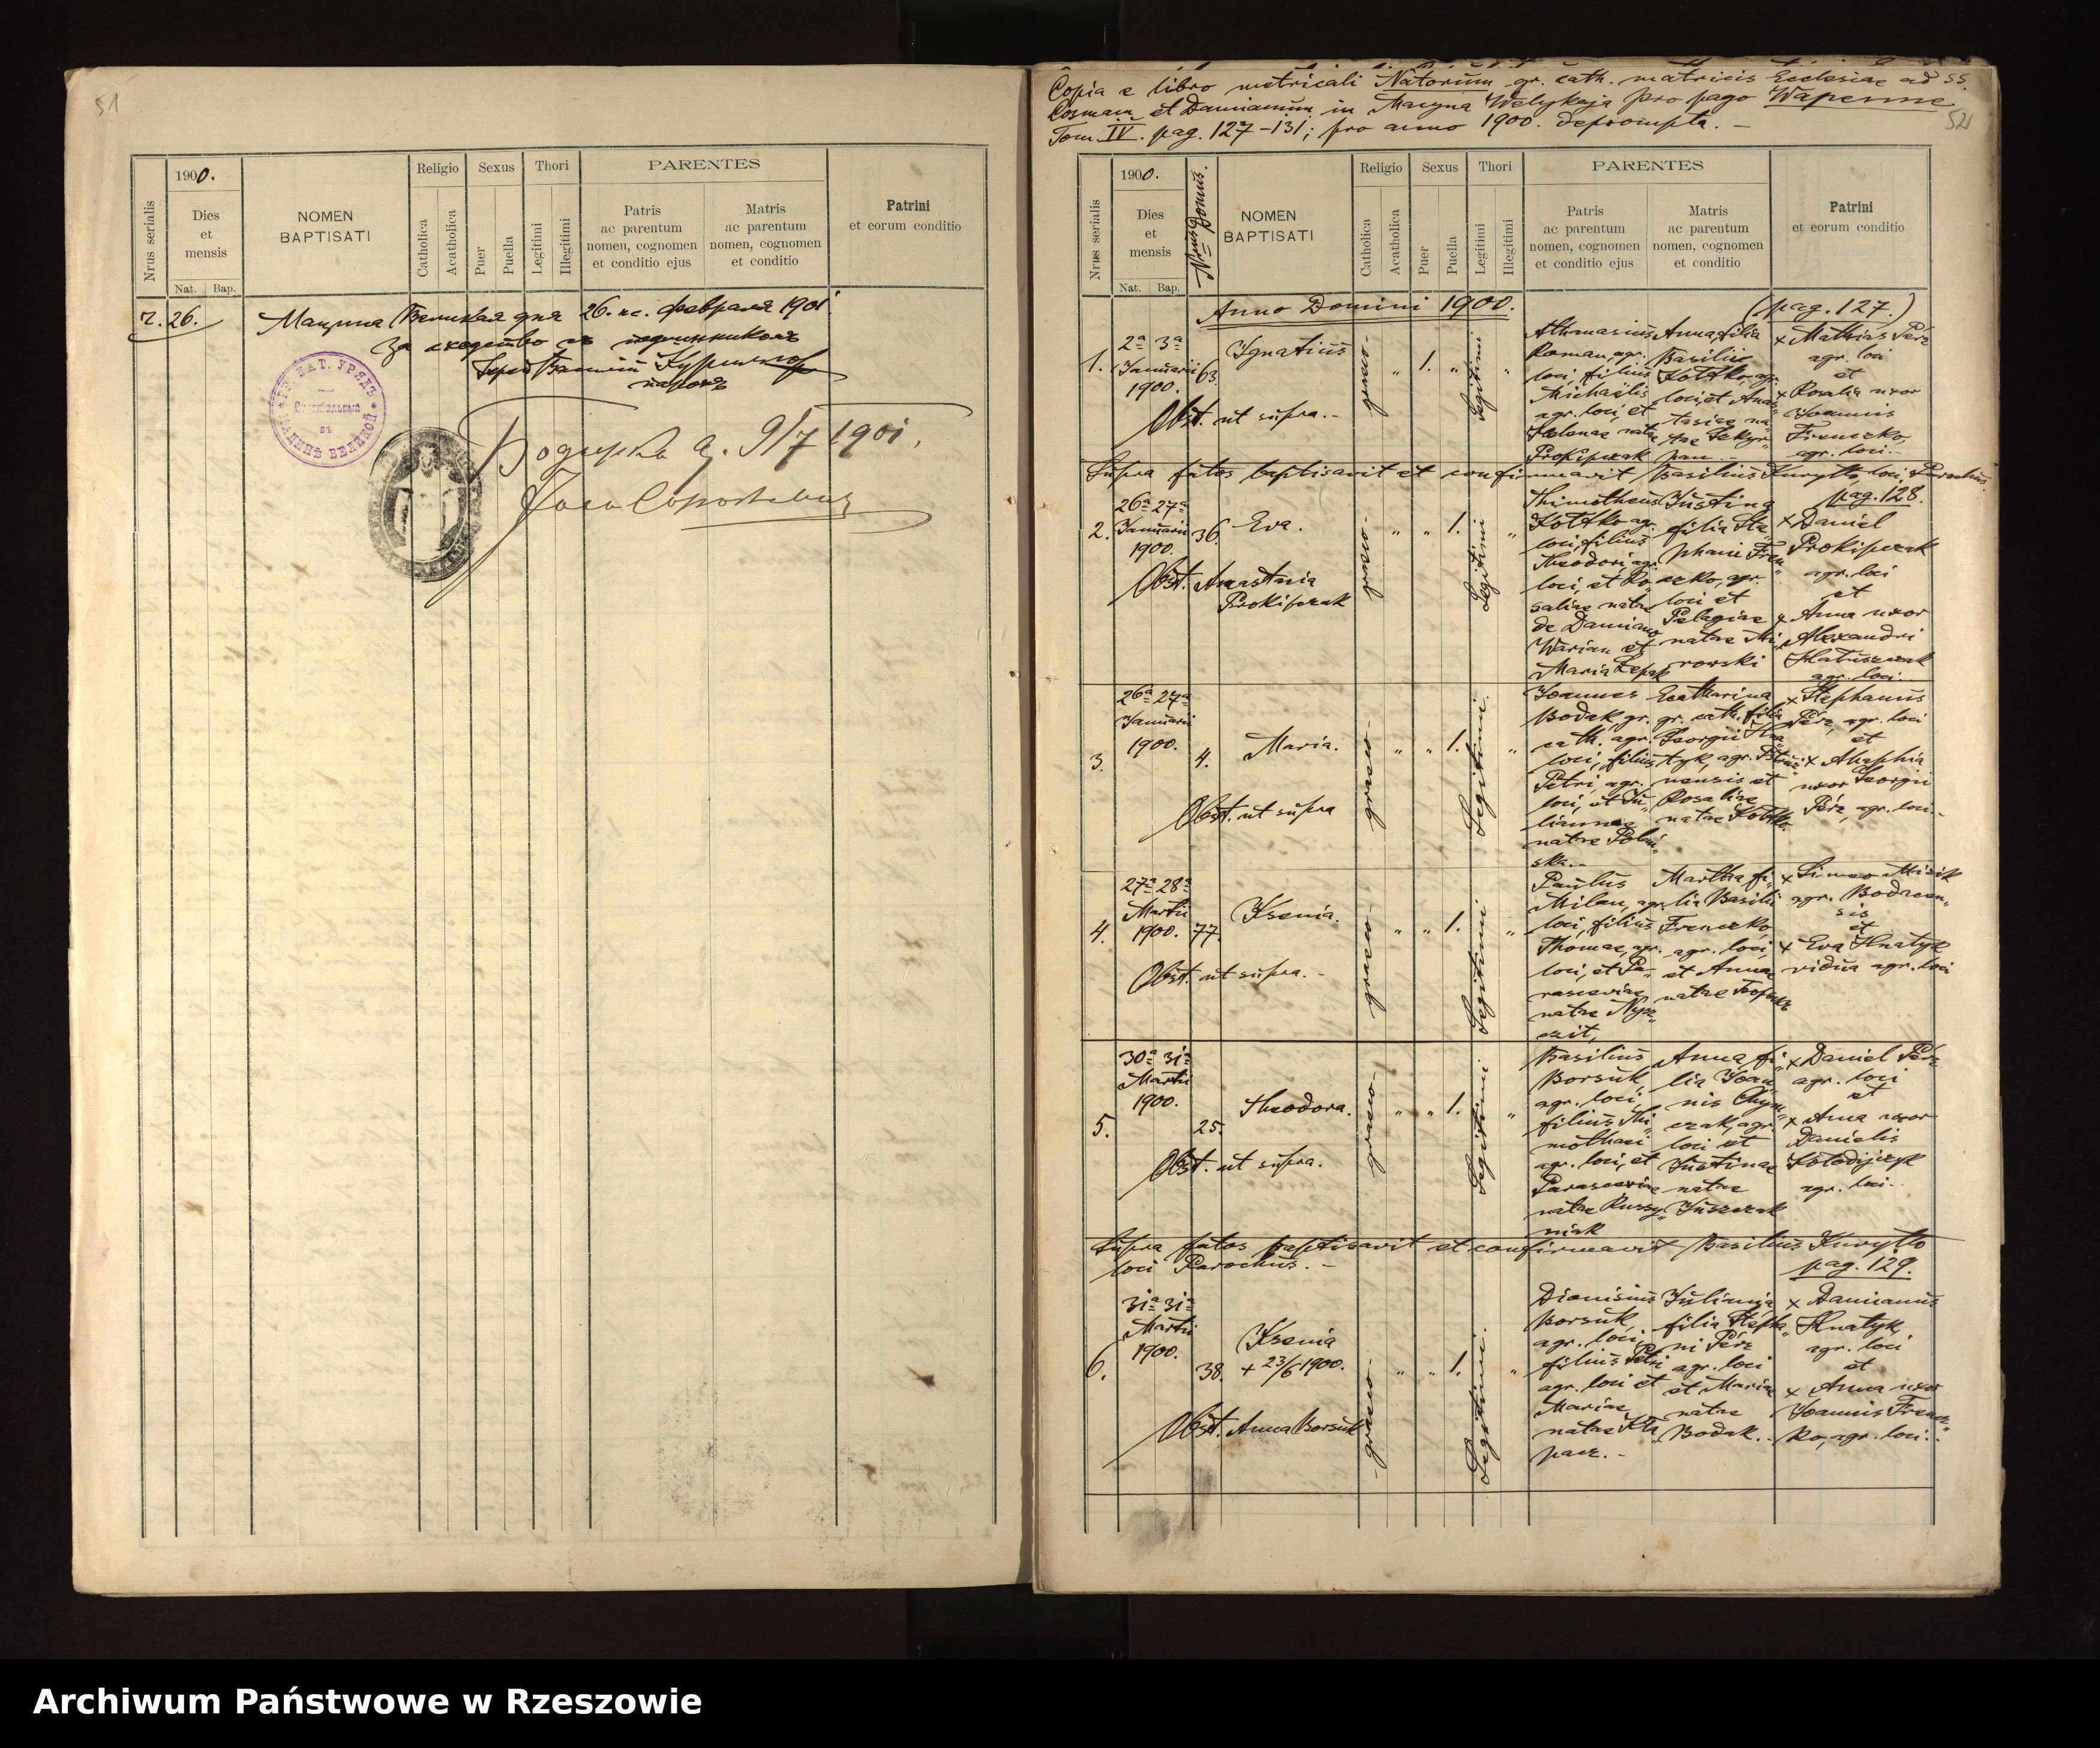 51
1900.
Nrus serialis
Dies
et
mensis
Nat. Bap.
NOMEN
BAPTISATI
Religio
Catholica
Acatholica
Sexus
Puer
Puella
Thori
Legitimi
Illegitimi
PARENTES
Patris
ac parentum
nomen, cognomen
et conditio ejus
Matris
ac parentum
nomen, cognomen
et conditio
Patrini
et eorum conditio
Ч. 26. Мацина Великая дня 26. нс. февраля 1901
За сходство съ подлинникомъ
парохъ
9/7 1901.
Copia e libro metricali Natorum gr. cath. matricis Ecclesiae ad SS.
Cosmam et Damianum in Macyna Welykaja pro pago Wapenne
Tom. IV. pag. 127-131; pro anno 1900. deprompta. -
52
1900.
Nrus serialis
Dies
et
mensis
Nat. Bap.
Nrus Domus.
NOMEN
BAPTISATI
Religio
Catholica
Acatholica
Sexus
Puer
Puella
Thori
Legitimi
Illegitimi
PARENTES
Patris
ac parentum
nomen, cognomen
et conditio ejus
Matris
ac parentum
nomen, cognomen
et conditio
Patrini
et eorum conditio
Anno Domini 1900. (pag. 127.)
1.
2ª 3ª
Januarii
1900.
63.
Ignatius
Obst. ut supra. -
graeco-
" 1. "
Legitimi
"
Athanasius
Roman, agr.
loci, filius
Michaelis
agr. loci, et
Helenae natae
Prokipczak
Anna, filia
Basilii
Kottko, agr.
loci, et Anas"
tasiae na"
tae Dekyr"
pan. -
x Mathias Pérz
agr. loci
et
x Rosalia uxor
Joannis
Frenczko,
agr. loci. -
Supra fatos baptisavit et confirmavit Basilius Kuryłło, loci Parochus.
pag. 128.
2.
26ª 27ª
Januarii
1900.
36.
Eva.
Obst. Anastasia
Prokipczak
graeco-
" " 1.
Legitimi
"
Thimotheus
Kottko agr.
loci, filius
Theodori, agr.
loci, et Ro"
saliae natae
de Damiano
Warian et
Maria
Justina
filia Ste"
phani Fren"
czko, agr.
loci et
Pelagiae
natae Mi"
rowski
x Daniel
Prokipczak
agr. loci
et
x Anna uxor
Alexandri
Hatuszczak
agr. loci.
3.
26ª 27ª
Januarii
1900.
4.
Maria.
Obst. ut supra
graeco-
" " 1.
Legitimi.
"
Joannes
Bodak, gr.
cath. agr.
loci, filius
Petri, agr.
loci, et Ju"
liannae
natae Polań"
ska. -
Ecatharina
gr. cath. filia
Georgii Hna"
tyk, agr.
nensis et
Rosaliae
natae Kottko.
x Stephanus
Pérz, agr. loci
et
x Ahaphia
uxor Georgii
Pérz, agr. loci. -
4.
27ª 28ª
Martii
1900.
77.
Ksenia.
Obst. ut supra. -
graeco-
" " 1.
Legitimi
"
Paulus
Milan, agr.
loci, filius
Thomae, agr.
loci, et Pa"
rascevias
natae
Martha fi"
lia Basilii
Frenczko
agr. loci,
et Annae
natae
x Simeo Misik
agr. Bodacen"
sis
et
x Eva Hnatyk
vidua agr. loci
5.
30ª 31ª
Martii
1900.
25.
Theodora.
Obst. ut supra.
graeco-
" " 1.
Legitimi
"
Basilius
Borsuk,
agr. loci,
filius Thi"
mothaei
agr. loci, et
Parasceviae
natae Russy"
niak
Anna, fi"
lia Joan"
nis Chym"
czak, agr.
loci et
Justinae
natae
Juszczak
x Daniel Pérz
agr. loci
et
x Anna uxor
Danielis
Kołodijczyk
agr. loci. -
Supra fatos baptisavit et confirmavit Basilius Kuryłło
loci Parochus. -
pag. 129.
6.
31ª 31ª
Martii
1900.
38.
Ksenia
+ 23/6 1900.
Obst. Anna Borsuk
graeco-
" " 1.
Legitimi.
"
Dionisius
Borsuk
agr. loci,
filius Petri
agr. loci et
Mariae
natae Kła"
pacz. -
Julianna
filia Stepha"
ni Pérz
agr. loci
et Mariae
natae
Bodak. -
x Damianus
Hnatyk,
agr. loci
et
x Anna uxor
Joannis Frencz"
ko, agr. loci. -
Archiwum Państwowe w Rzeszowie